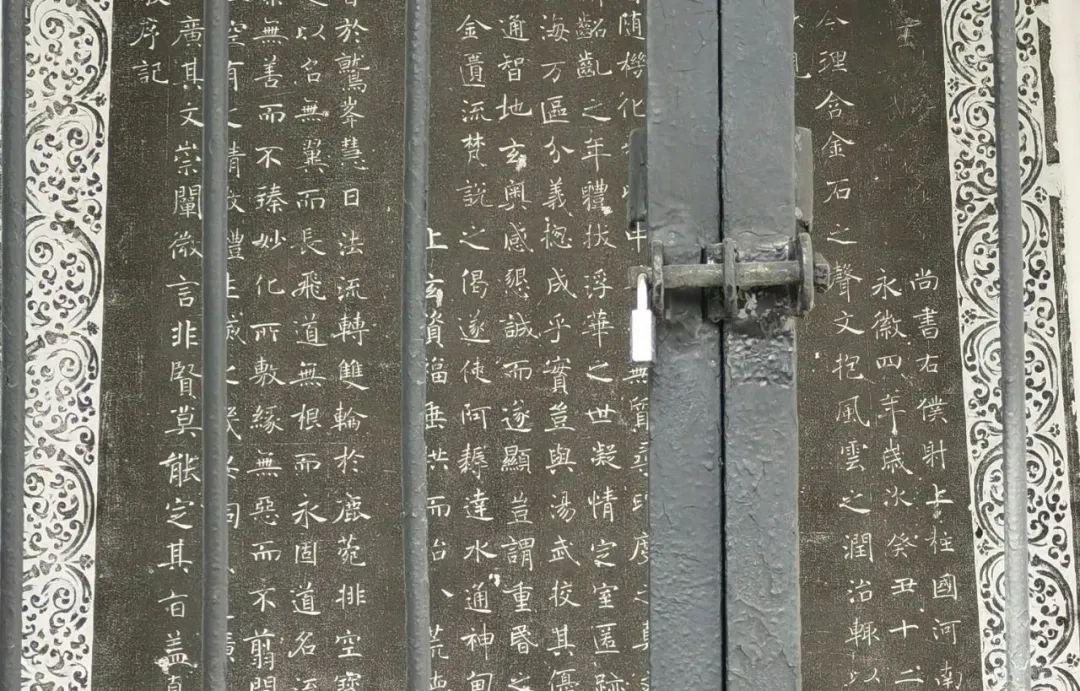 序記
廣其文崇闡微言非賢莫能定其旨蓋真
無善而不臻妙化所敷緣無惡而不翦
以名無翼而長飛道無根而永固道名流
於鷲峯慧日法流轉雙輪於鹿菀排空寶
上玄資福垂拱而治 荒
金遺流梵說之偈遂使阿耨達水通神甸
通智地玄奧感懇誠而遂顯豈謂重昬之
海万區分義揔成乎實豈與湯武校其優
齠齔之年體拔浮華之世凝情定室匿跡
隨機化 無質尋印度之真
今理含金石之聲文抱風雲之潤治輒以
永徽四年歲次癸丑十二
尚書右僕射上柱國河南